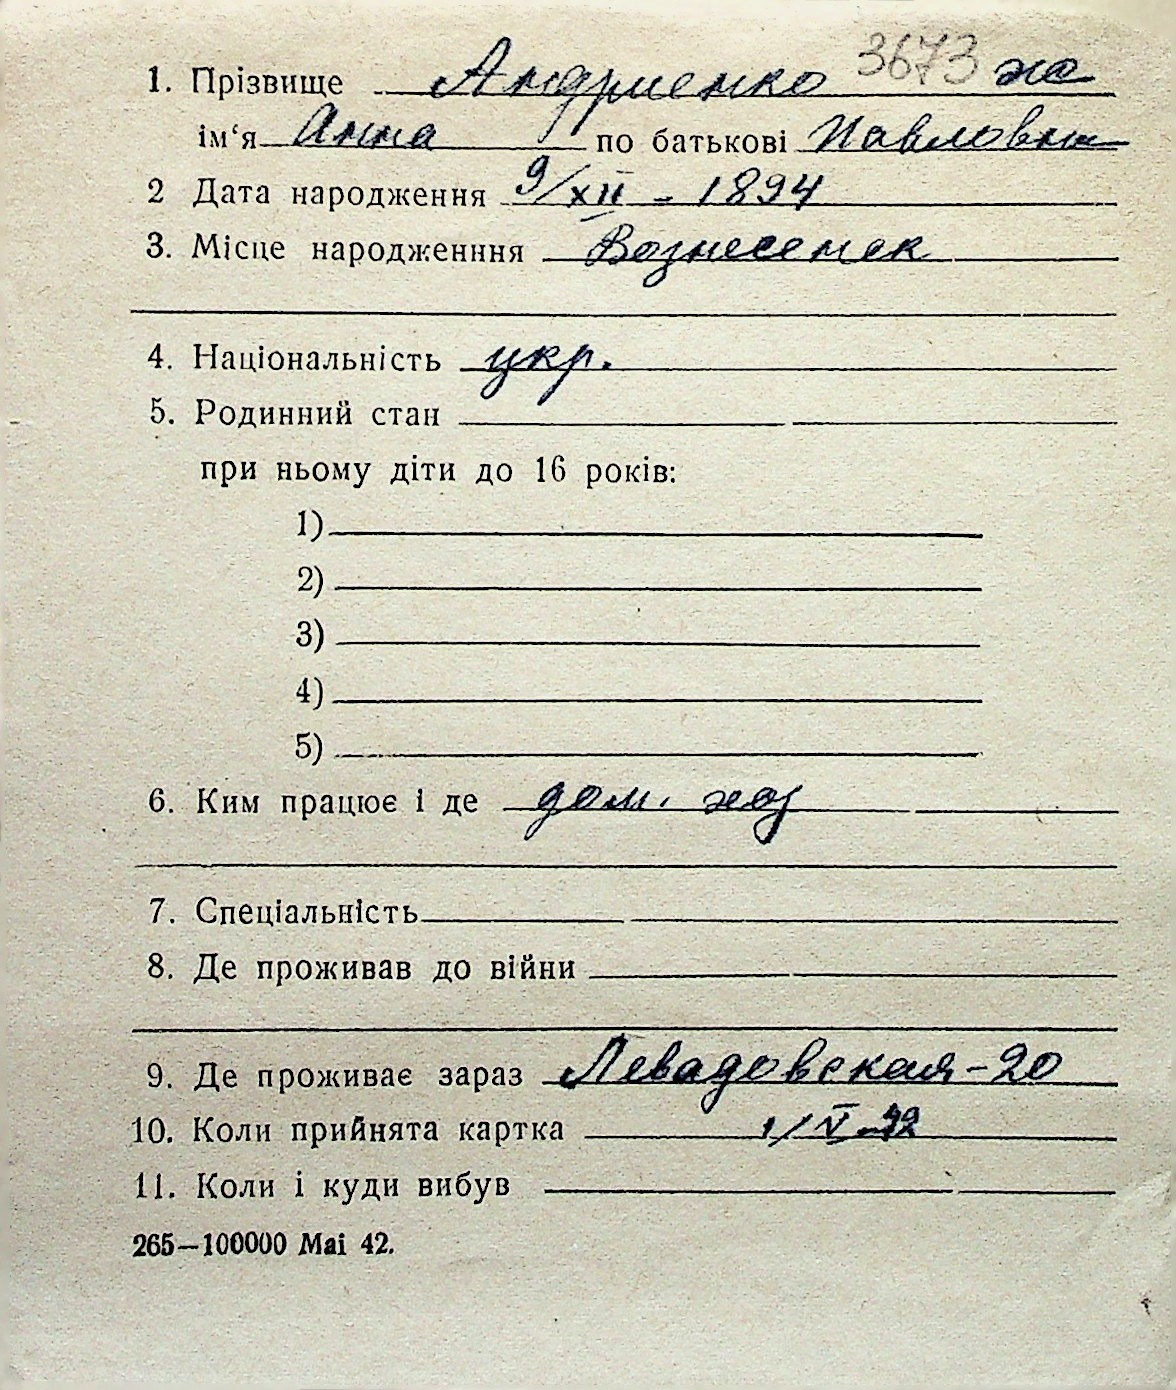 1. Прізвище Андриенко 3673 ж
ім‘я Анна по батькові Павловна
2 Дата народження 9/XII - 1894
3. Місце народженння Вознесенск
4. Національність укр.
5. Родинний стан
при ньому діти до 16 років:
1)
2)
3)
4)
5)
6. Ким працює і де дом. хоз
7. Спеціальність
8. Де проживав до війни
9. Де проживає зараз Левадовская-20
10. Коли прийнята картка 1/V-42
11. Коли і куди вибув
265—100000 Mai 42.